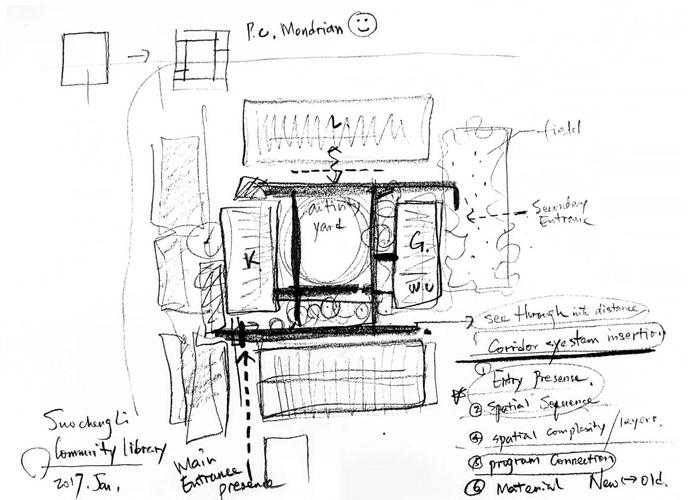 P.C. Mondrian
L.
field
activity
yard
Secondary
Entrance
K.
G.
W.C
see through into distance.
Corridor system insertion
① Entry Presence.
② Spatial Sequence
④ spatial complexity / layers.
⑤ program Connection
⑥ Material New ↔ Old.
SuochengLi
Community Library
2017. Jan.
Main
Entrance
presence